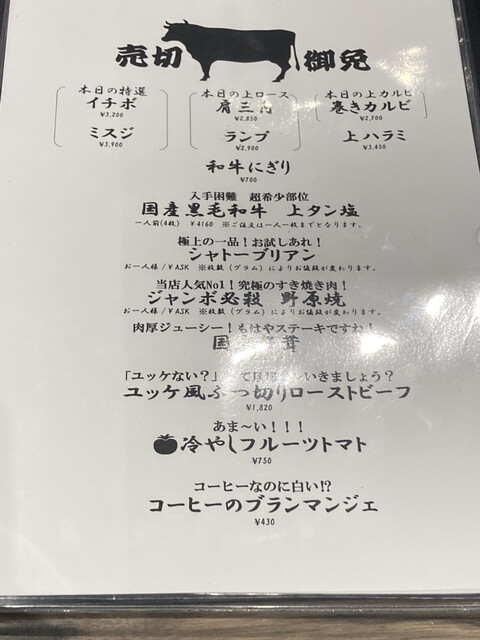 売切 御免
本日の特選 本日の上ロース 本日の上カルビ
イチボ 肩三角 巻きカルビ
¥3,200 ¥2,850 ¥2,700
ミスジ ランプ 上ハラミ
¥3,900 ¥2,900 ¥3,450
和牛にぎり
¥700
入手困難 超希少部位
国産黒毛和牛 上タン塩
一人前(4枚) ¥4160 ※ご注文は一人一枚までとなります。
極上の一品!お試しあれ!
シャトーブリアン
お一人様/¥ASK ※枚数(グラム)によりお値段が変わります。
当店人気No1!究極のすき焼き肉!
ジャンボ必殺 野原焼
お一人様/¥ASK ※枚数(グラム)によりお値段が変わります。
肉厚ジューシー!もはやステーキですね!
国 茸
「ユッケない?」 いきましょう?
ユッケ風ぶつ切りローストビーフ
¥1,820
あま〜い!!!
冷やしフルーツトマト
¥750
コーヒーなのに白い!?
コーヒーのブランマンジェ
¥430